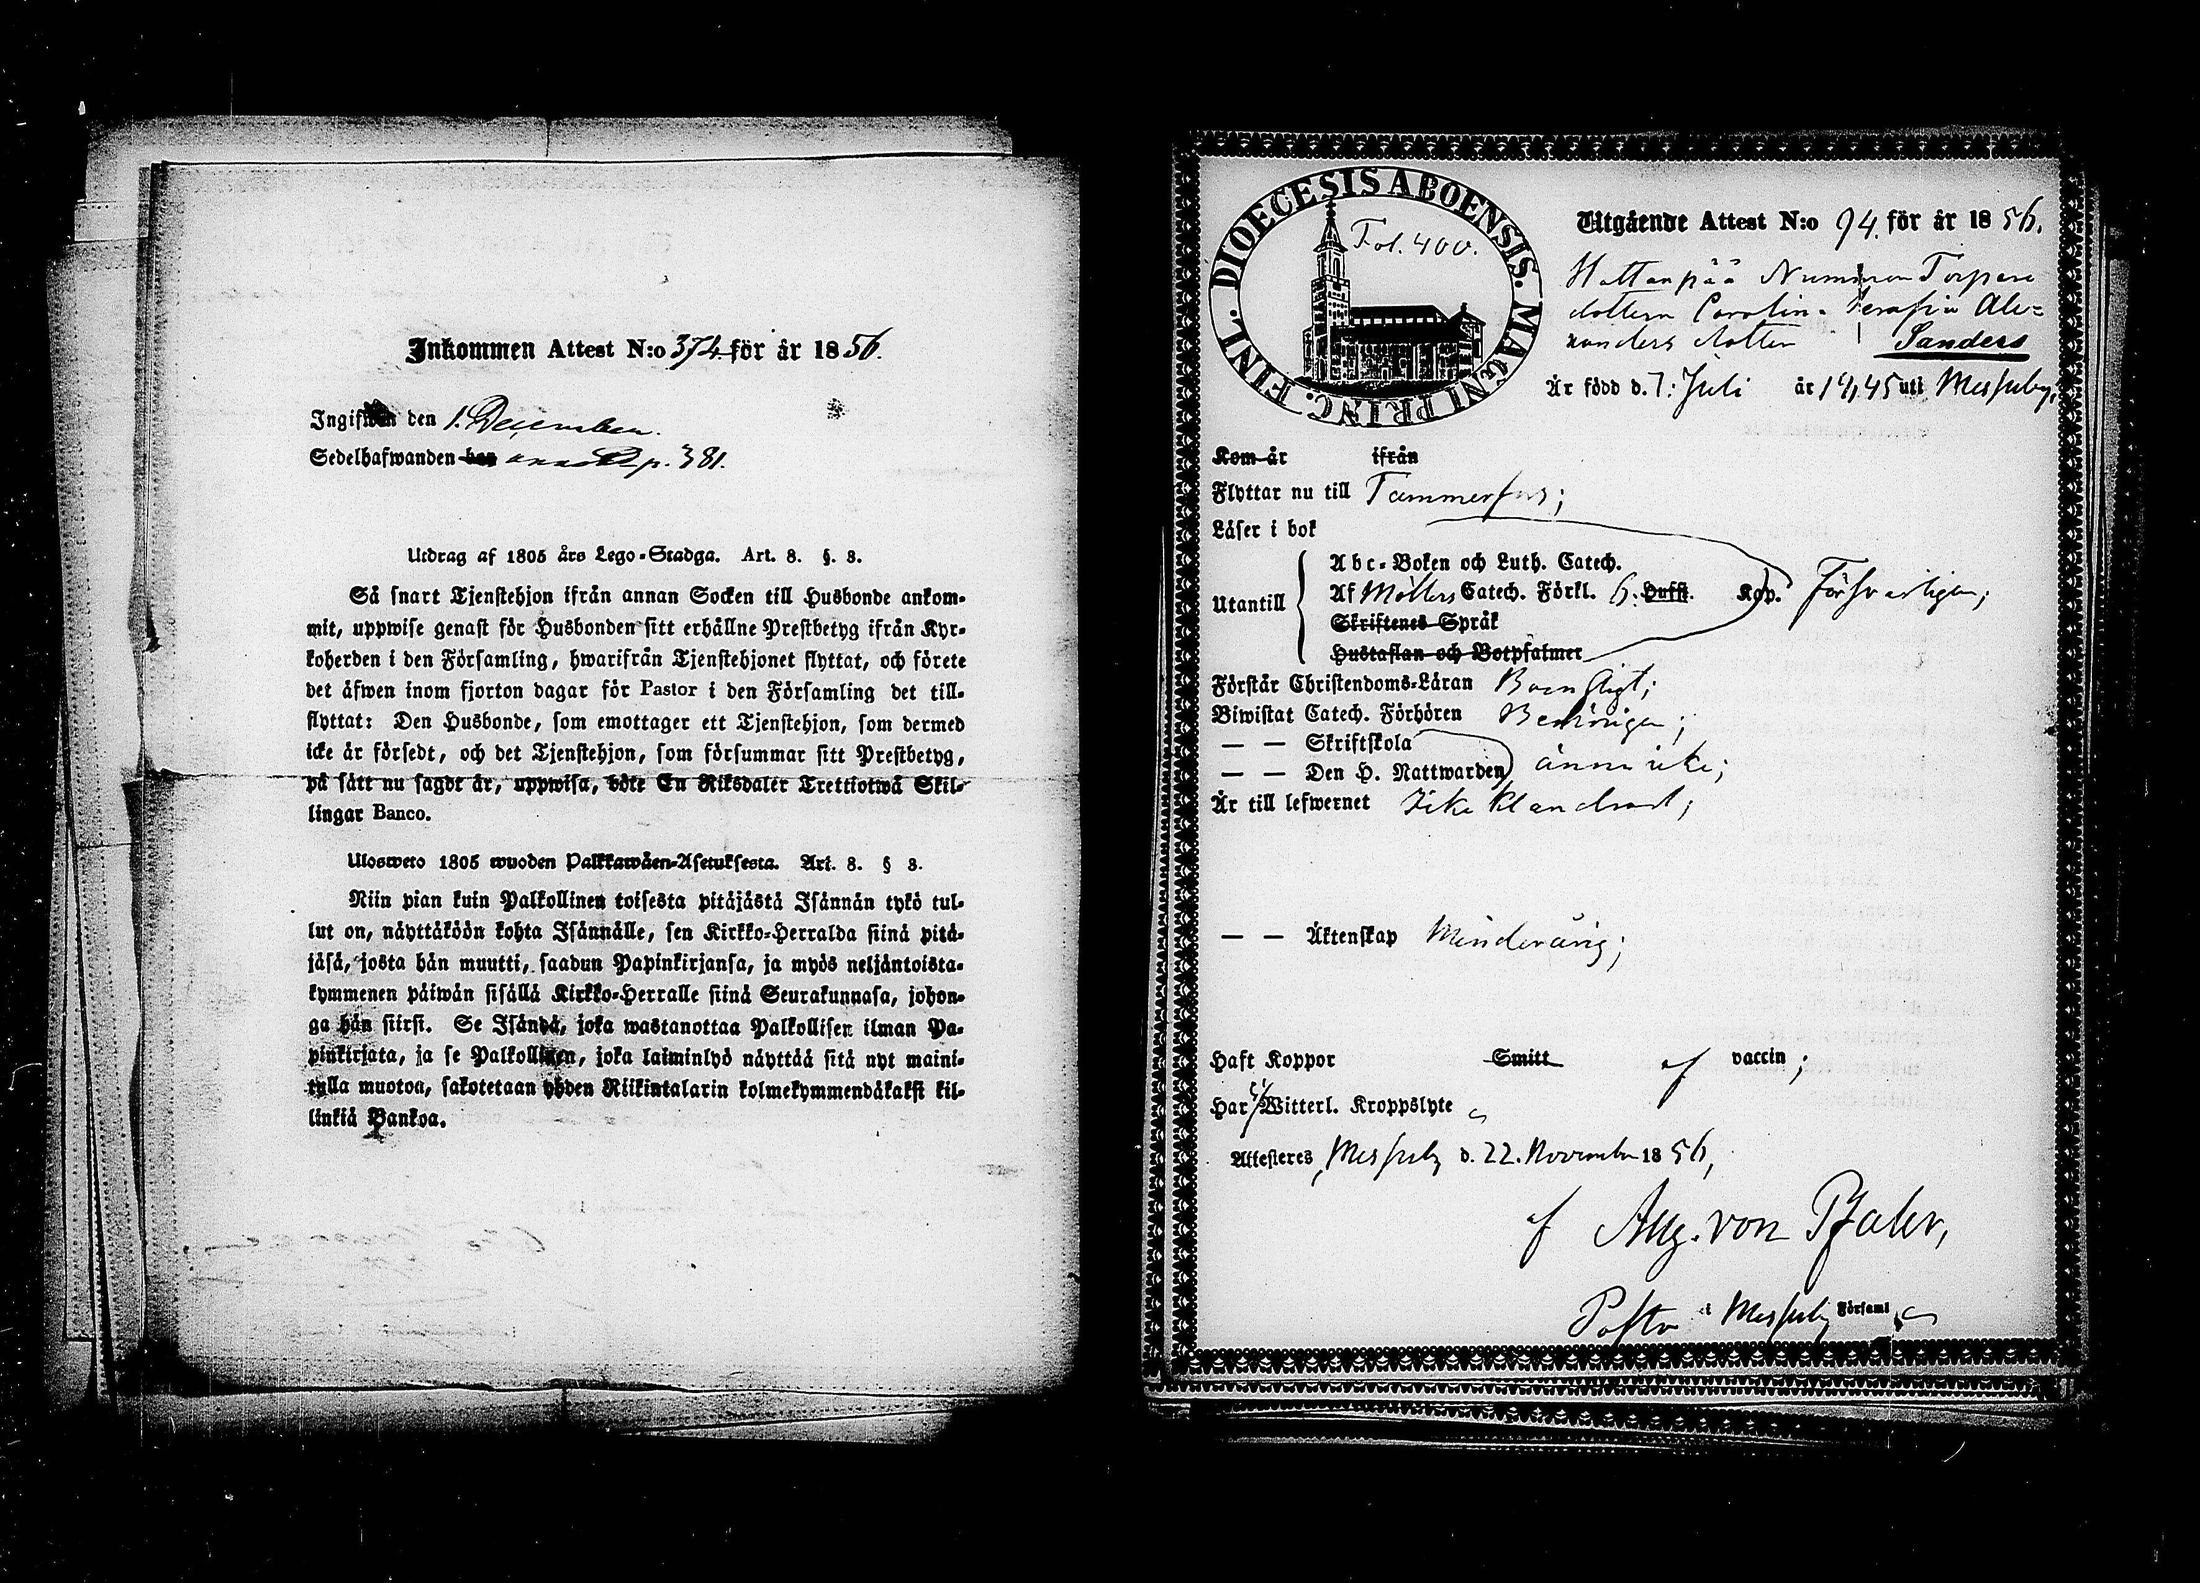 Inkommen Attest N:o 374 för år 1856.
Ingifwen den 1. December.
Sedelhafwanden har p. 381.
Utdrag af 1805 års Lego-Stadga. Art. 8. §. 3.
Så snart Tjenstehjon ifrån annan Socken till Husbonde ankom-
mit, uppwise genast för Husbonden sitt erhållne Prestbetyg ifrån Kyr-
koherden i den Församling, hwarifrån Tjenstehjonet flyttat, och förete
det äfwen inom fjorton dagar för Pastor i den Församling det till-
flyttat: Den Husbonde, som emottager ett Tjenstehjon, som dermed
icke är försedt, och det Tjenstehjon, som försummar sitt Prestbetyg,
på sätt nu sagdt är, uppwisa, böte En Riksdaler Trettiotwå Skil-
lingar Banco.
Ulosweto 1805 wuoden Palkkawäen-Asetuksesta. Art. 8. § 3.
Niin pian kuin Palkollinen toisesta pitäjästä Isännän tykö tul-
lut on, näyttäköön kohta Isännälle, sen Kirkko-Herralda siinä pitä-
jäsä, josta hän muutti, saadun Papinkirjansa, ja myös neljäntoista-
kymmenen päiwän sisällä Kirkko-Herralle siinä Seurakunnasa, johon-
ga hän siirsi. Se Isändä, joka wastanottaa Palkollisen ilman Pa-
pinkirjata, ja se Palkollinen, joka laiminlyö näyttää sitä nyt maini-
tulla muotoa, sakotetaan yhden Riikintalarin kolmekymmendäkaksi kil-
linkiä Bankoa.
DIOECESIS ABOENSIS. MAGNI PRINC. FINL.
Fol. 400.
Utgående Attest N:o 94. för år 1856.
Hattanpää Nummen Torpare
dottern Carolin. Serafia Alex=
anders dotter Sanders
Är född d. 7: Juli år 1845 uti Messuby,
Kom år ifrån
Flyttar nu till Tammerfors;
Läser i bok
Utantill
Abc-Boken och Luth. Catech.
Af Möllers Catech. Förkl. 6. Hufst. Kap. Försvarligen;
Skriftenes Språk
Hustaflan och Botpsalmer
Förstår Christendoms-Läran Barnsligt;
Biwistat Catech. Förhören Behörigen;
— — Skriftskola
— — Den H. Nattwarden ännu icke;
Är till lefwernet Icke klandrad;
— — Äktenskap Minderårig;
Haft Koppor Smitt af vaccin;
Har ej Witterl. Kroppslyte
Attesteres, Messuby d. 22. November 1856,
af Aug. von Pfaler,
Pastor i Messuby Församl.